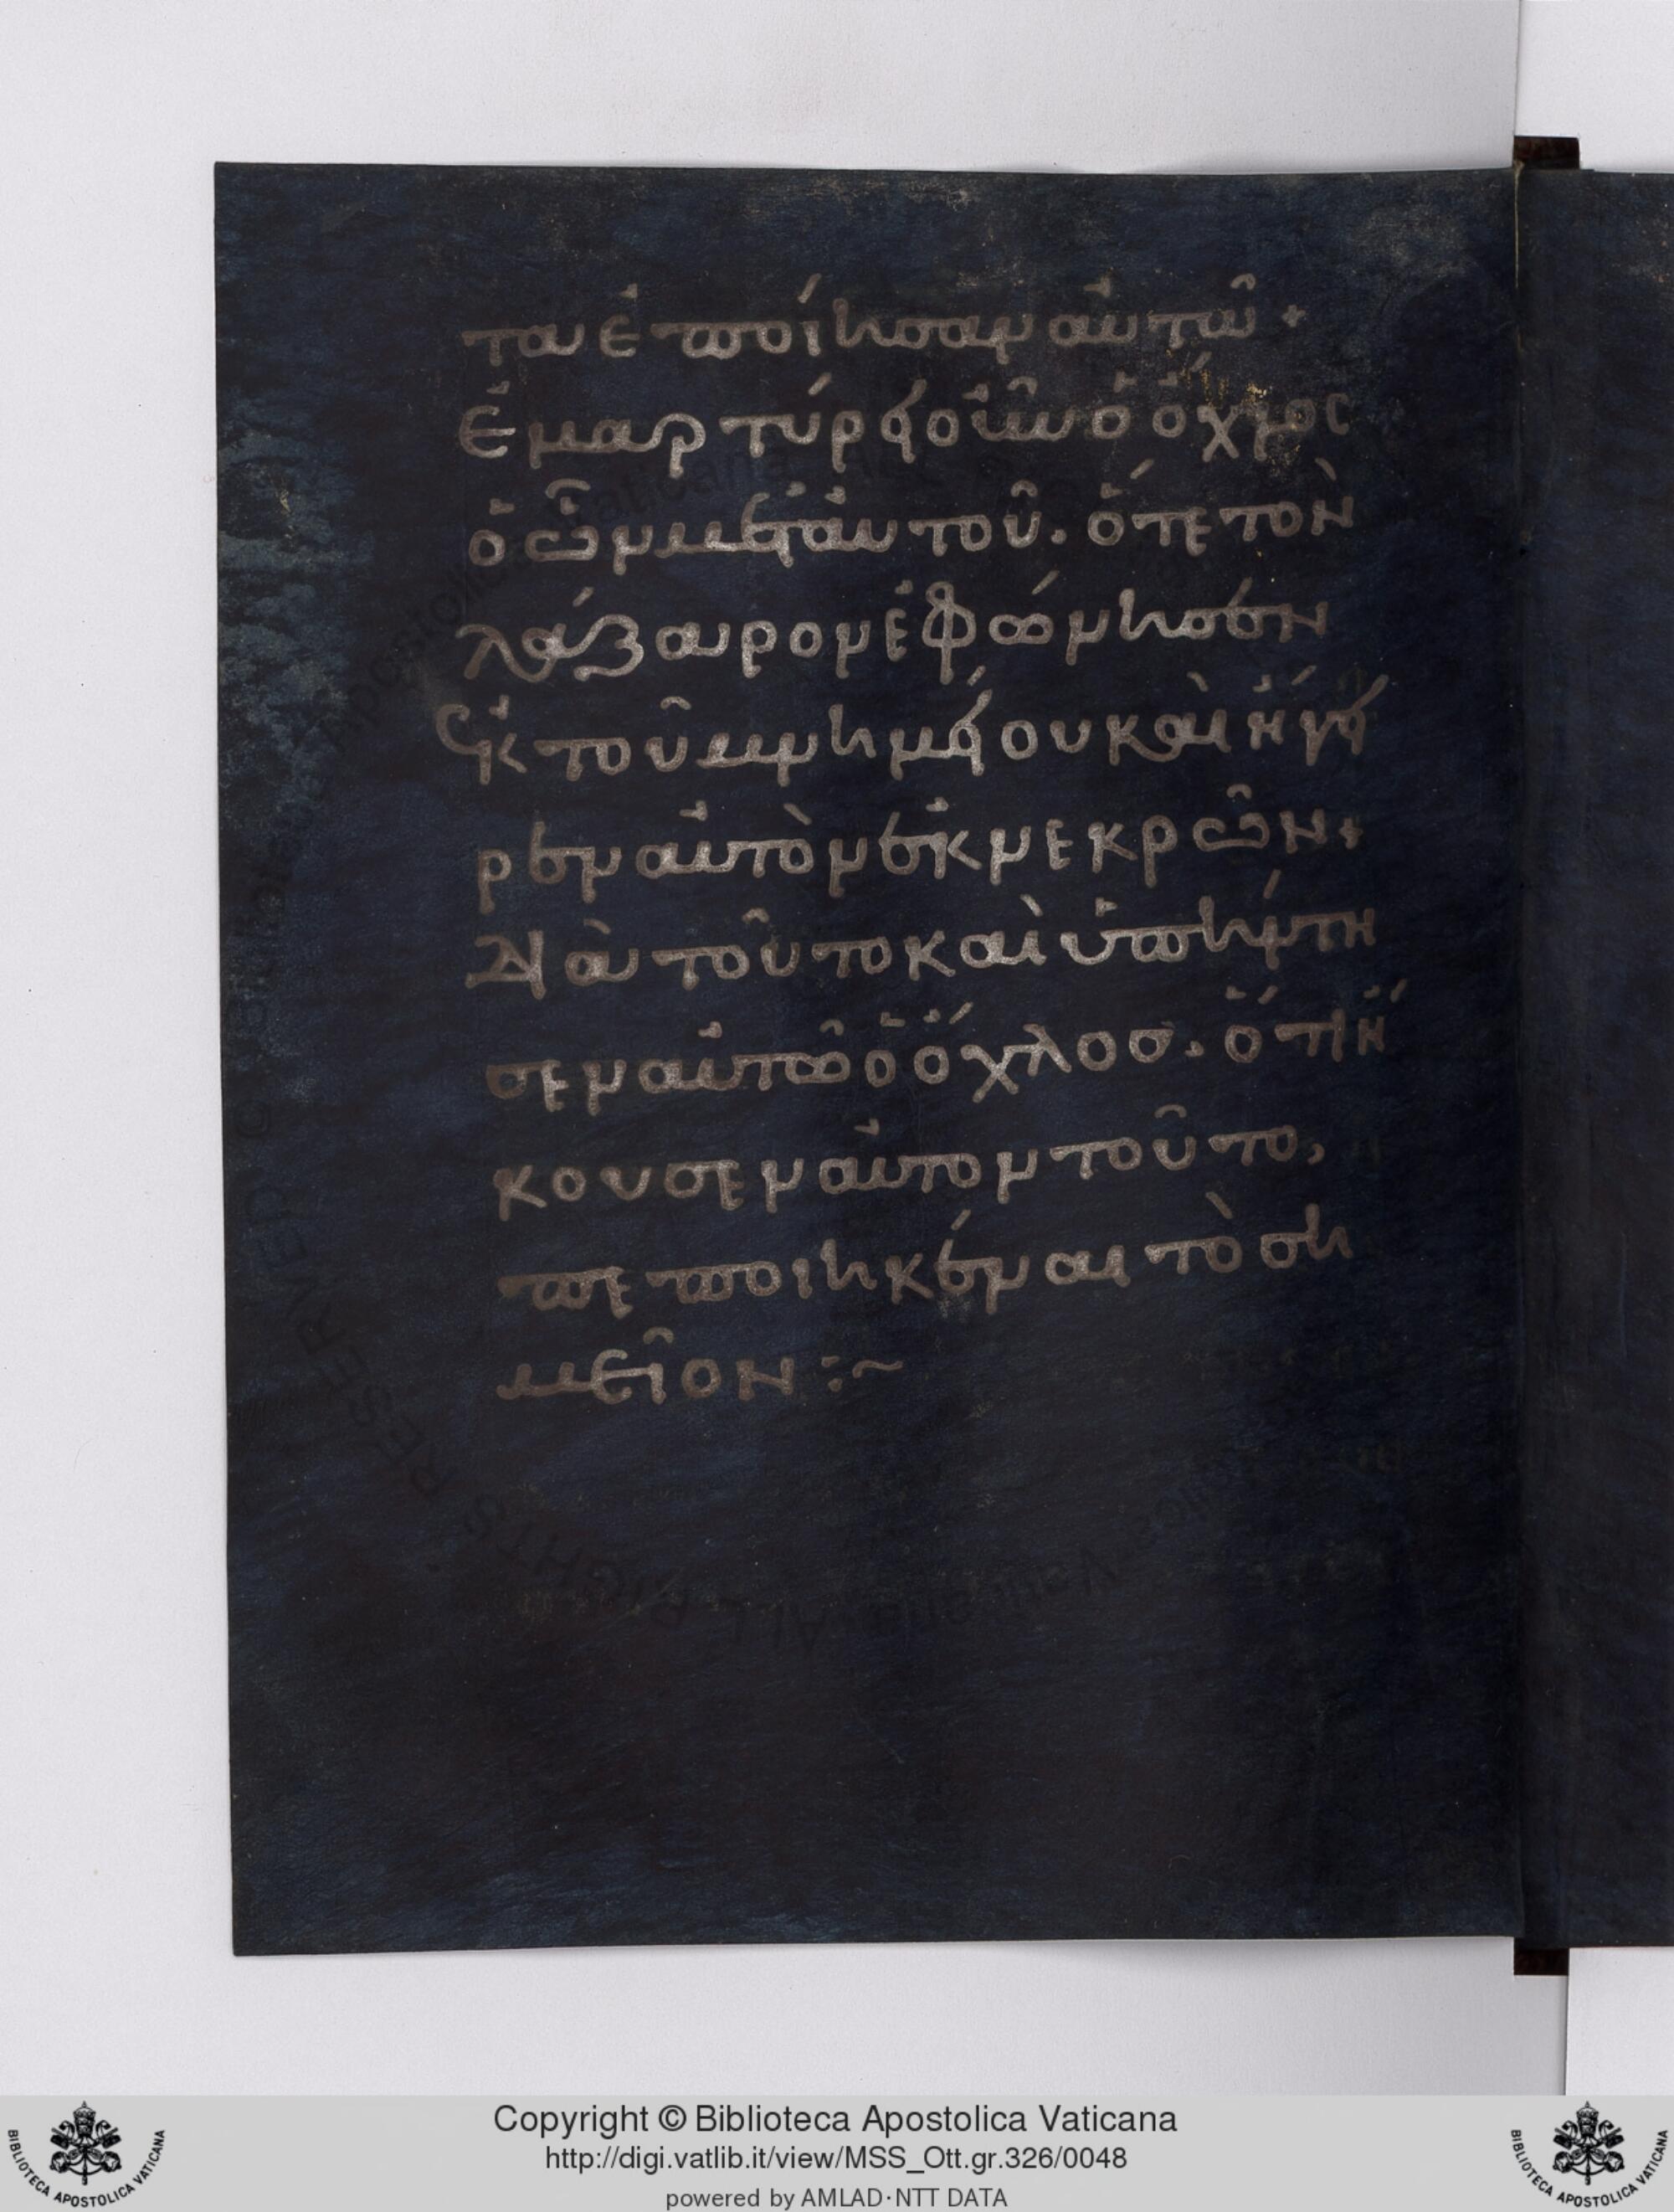 τα ἐποίησαν αὐτῶ +
Ἐμαρτύρει οὖν ὁ ὄχλος
ὁ ὢν μετ' αὐτοῦ. ὅτε τὸν
λάζαρον ἐφώνησεν
Ἐκ τοῦ μνημείου καὶ ἤγει
ρεν αὐτὸν ἐκ νεκρῶν +
Διὰ τοῦτο καὶ ὑπήντη
σεν αὐτῶ ὁ ὄχλοσ. ὅτι ἤ
κουσεν αὐτον τοῦτο,
πεποιηκέναι τὸ ση
μεῖον :~
Copyright © Biblioteca Apostolica Vaticana
http://digi.vatlib.it/view/MSS_Ott.gr.326/0048
powered by AMLAD·NTT DATA
BIBLIOTECA APOSTOLICA VATICANA
BIBLIOTECA APOSTOLICA VATICANA